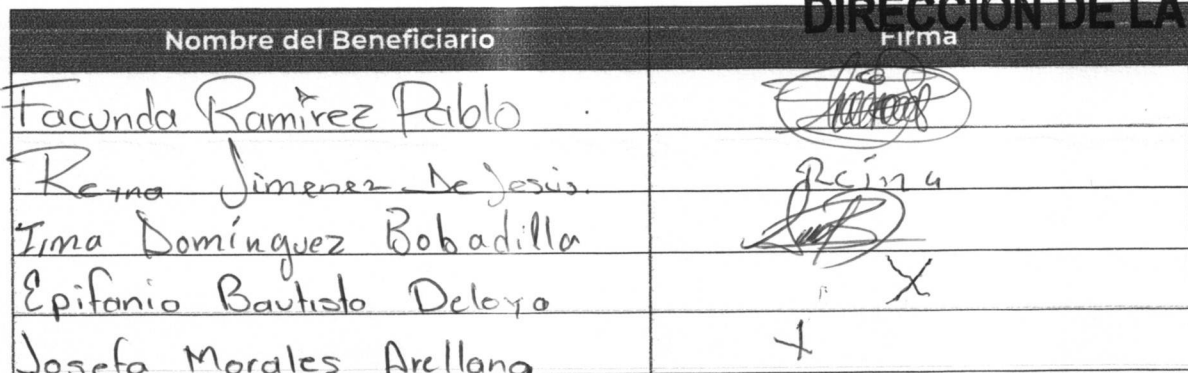 DIRECCION DE LA
Nombre del Beneficiario Firma
Facunda Ramírez Pablo
Reyna Jimenez De Jesús. Reína
Irma Domínguez Bobadilla
Epifanio Bautista Deloya X
Josefa Morales Arellano +